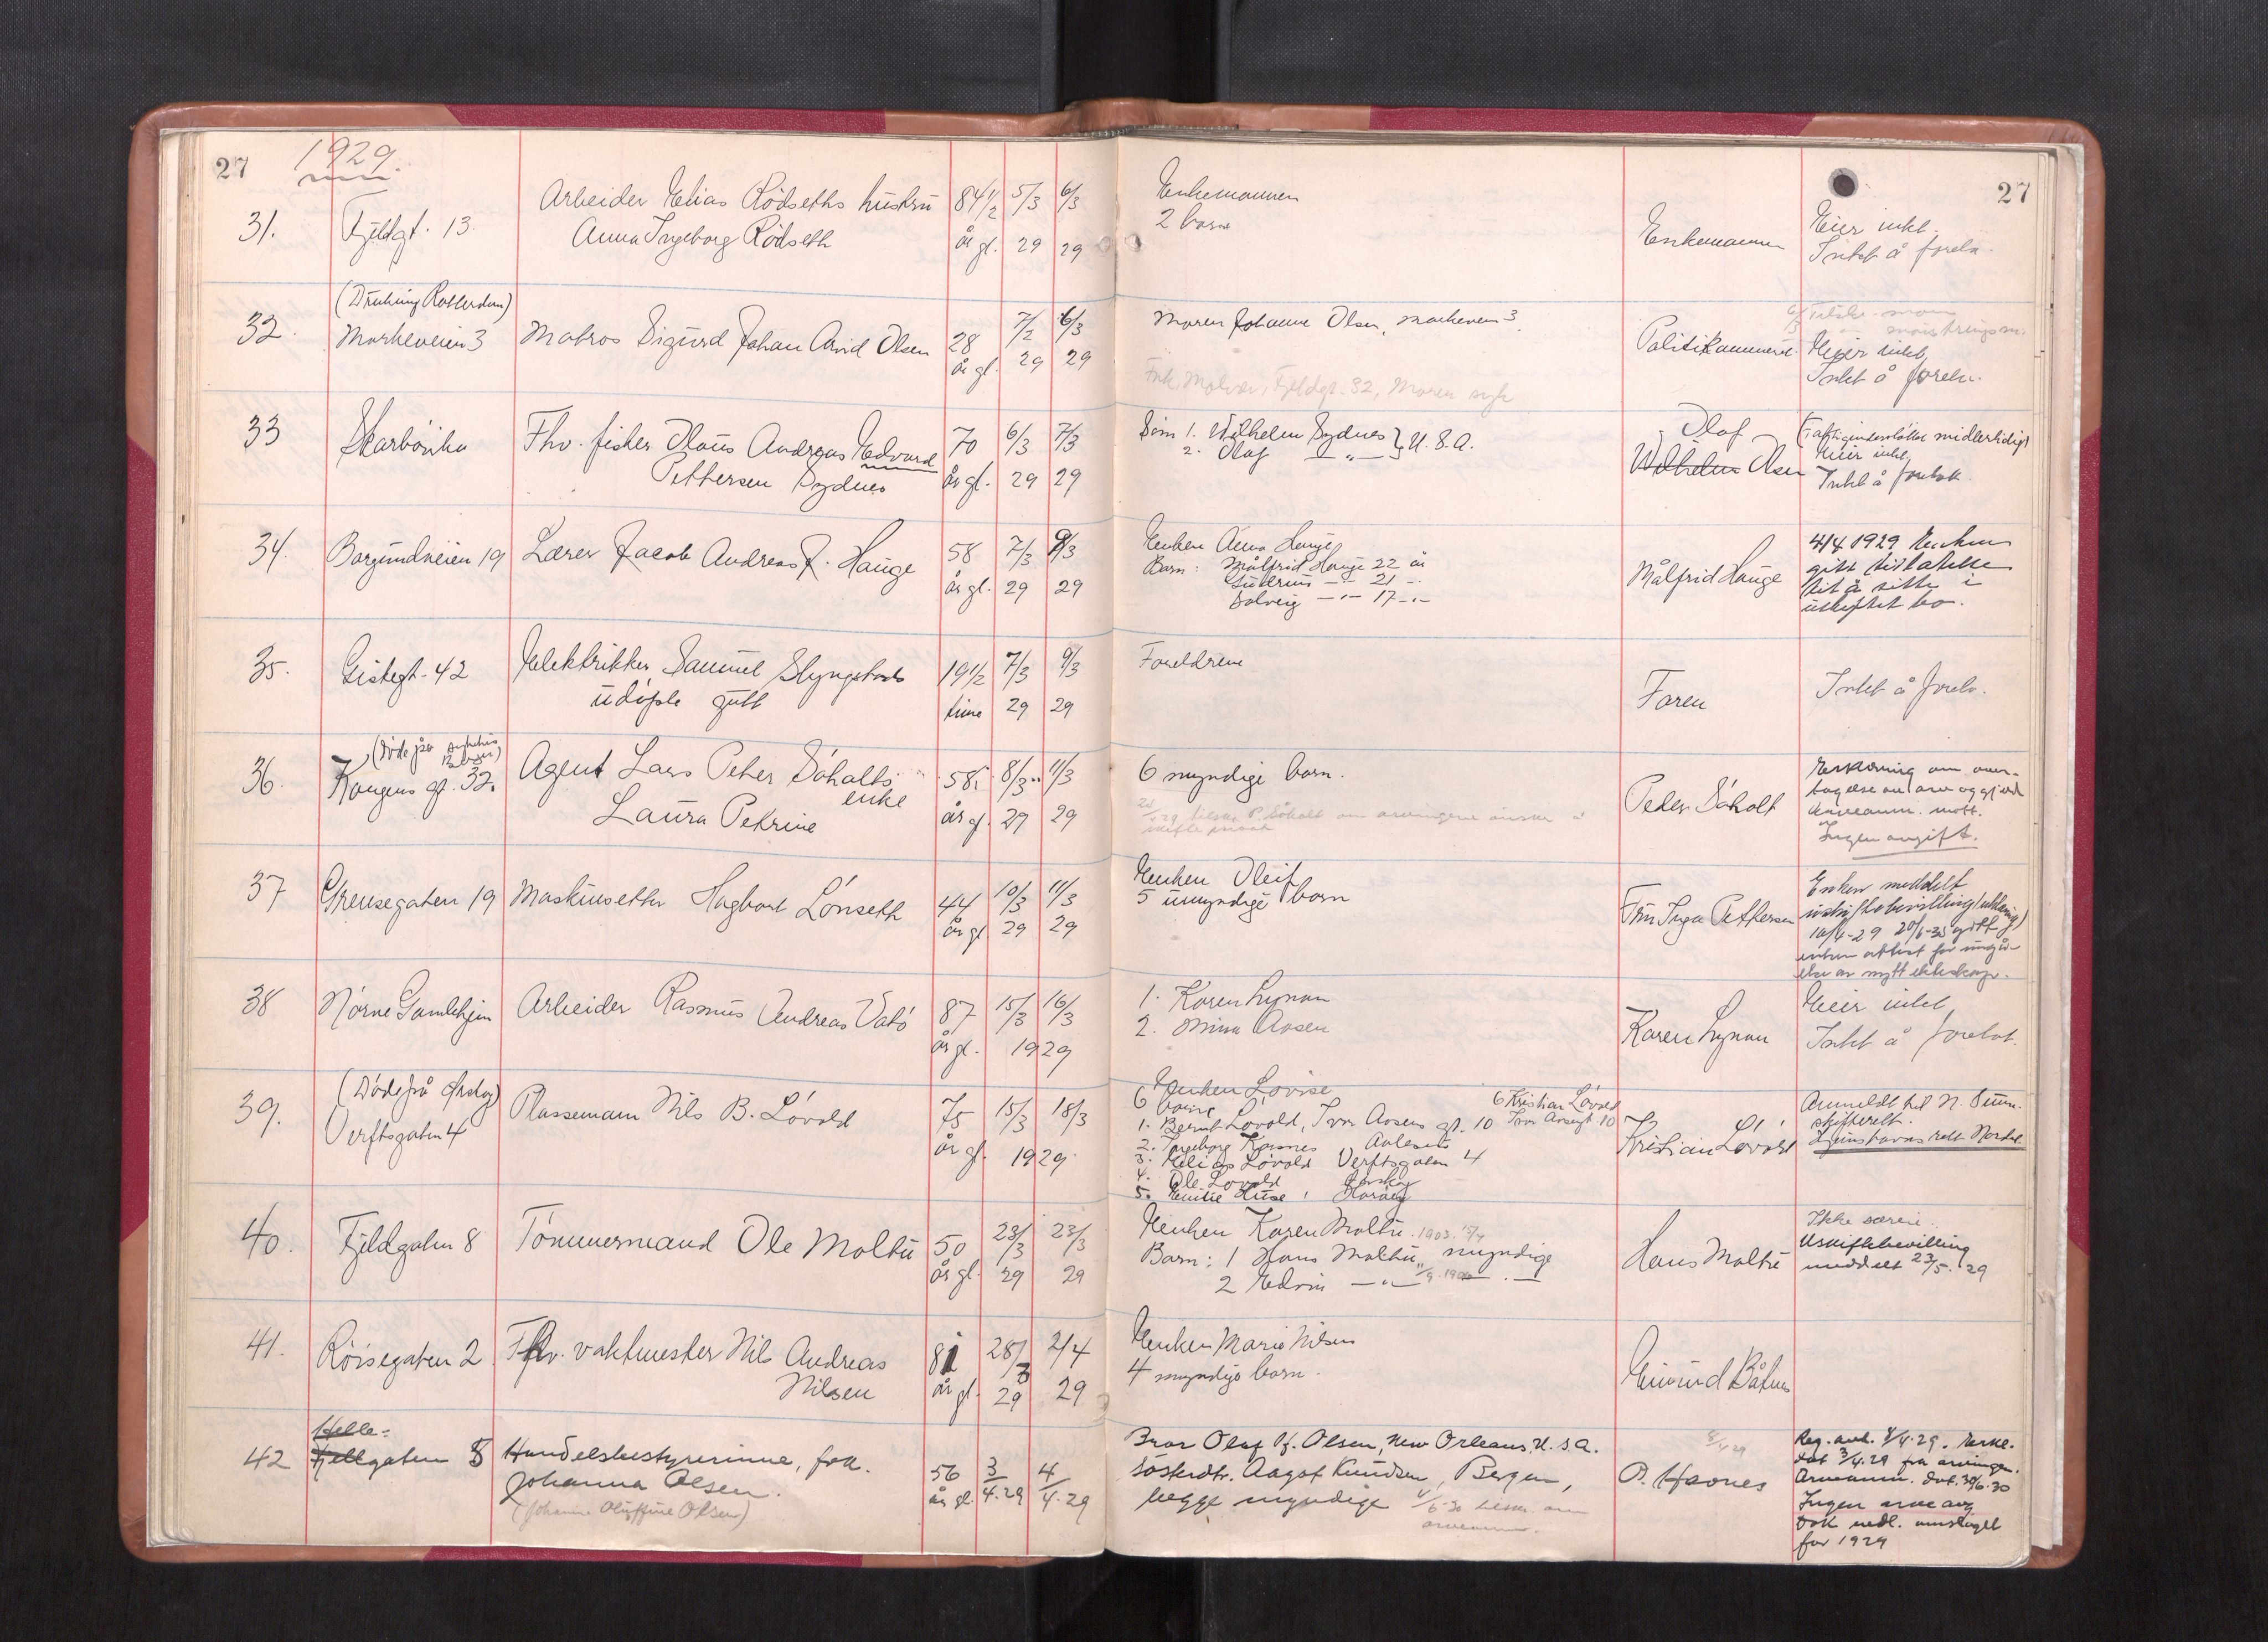 27
1929.
27
31.
Fjeldgt. 13.
Arbeider Elias Rödseths hustru
Anna Ingeborg Rödseth
84 1/2 år gl.
5/3 29
6/3 29
Enkemannen
2 barn
Enkemannen
Eier intet.
Intet å foreta.
32.
(Drukning Rotterdam)
Markeveien 3
Matros Sigurd Johan Arvid Olsen
28 år gl.
7/2 29
6/3 29
Moren Johanne Olsen, Markeveien 3.
Fjeldgt. 32, Moren
Politikammeret.
Eier intet,
Intet å foreta.
33
Skarbövika
Fhv. fisker Olaus Andreas Edvard
Pettersen Sydnes
70 år gl.
6/3 29
7/3 29
Sön 1. Wilhelm Sydnes } U.S.A.
2. Olaf —„—
Olaf
Wilhelm Olsen
midlertidig)
Eier intet.
Intet å foretak.
34.
Borgundveien 19
Lærer Jacob Andreas J. Hauge
58 år gl.
7/3 29
9/3 29
Enken Anna Hauge
Barn: Målfrid Hauge 22 år
—„— 21 —„—
Solveig —„— 17 —„—
Målfrid Hauge
4/4 1929 Enken
gitt tillatelse
til å sitte i
uskiftet bo.
35.
Gistegt. 42
Elektrikker Samuel Slyngstads
udöpte gutt
19 1/2 time
7/3 29
9/3 29
Foreldrene
Faren
Intet å foreta.
36.
(Döde på sykehus Bergen)
Kongens gt. 32.
Agent Lars Peter Söholts
enke
Laura Petrine
58 år gl.
8/3 29
11/3 29
6 myndige barn.
P. Söholt om arvingene önsker å
skifte privat
Peder Söholt
Erklæring om over-
tagelse av arv og gjeld
mott.
Ingen avgift.
37
Grensegaten 19
Maskinsetter Hagbart Lönseth
44 år gl
10/3 29
11/3 29
Enken Oleif
5 umyndige barn
Fru Inga Pettersen
Enken meddelt
uskiftebevilling
10/4-29 20/6-35 gitt
enken attest for inngå-
else av nytt ekteskap.
38
Nörve Gamlehjem
Arbeider Rasmus Andreas Vatö
87 år gl.
15/3
16/3
1929
1. Karen Lynau
2. Mina Aasen
Karen Lynau
Eier intet
Intet å foretat.
39.
(Döde på Ørskog)
Verftsgaten 4
Plassemann Nils B. Lövold
75 år gl.
15/3
18/3
1929
Enken Lovise
6 barn
6 Kristian Lövold
Ivar Aasengt 10
1. Bernt Lövold, Ivar Aasens gt. 10
2. Ingeborg Aalesund
3. Elias Lövold Verftsgaten 4
4. Ole Lovold Ørskog
5. Emilie Huse, Haröy
Kristian Lövold
Anmeldt til N. Sunn.
skifterett.
40.
Fjeldgaten 8
Tömmermand Ole Moltu
50 år gl.
23/3 29
23/3 29
Enken Karen Moltu.
Barn: 1 Hans Moltu, myndige
2 Edvin —„—
Hans Moltu
Ikke særeie.
Uskiftebevilling
meddelt 23/5. 29
41.
Röisegaten 2
Fhv. vaktmester Nils Andreas
Nilsen
81 år gl.
28/3 29
2/4 29
Enken Marie Nilsen
4 myndige barn.
42
Helle-
Fjellgaten 8
Handelsbestyrerinne, frk.
Johanna Olsen.
(Johanne Oluffine Olsen)
56 år gl.
3/4.29
4/4.29
Bror Olaf Pf. Olsen, New Orleans, U.S.A.
Sösterdtr. Aagot Knudsen, Bergen,
begge myndige
8/4 29
P. Havnes
Reg. anb. 8/4.29. Erkl.
dat 3/4.29 fra arvingen.
Arveanm. dat. 30/6.30
Ingen arveavg
Dok nedl. omslaget
for 1929